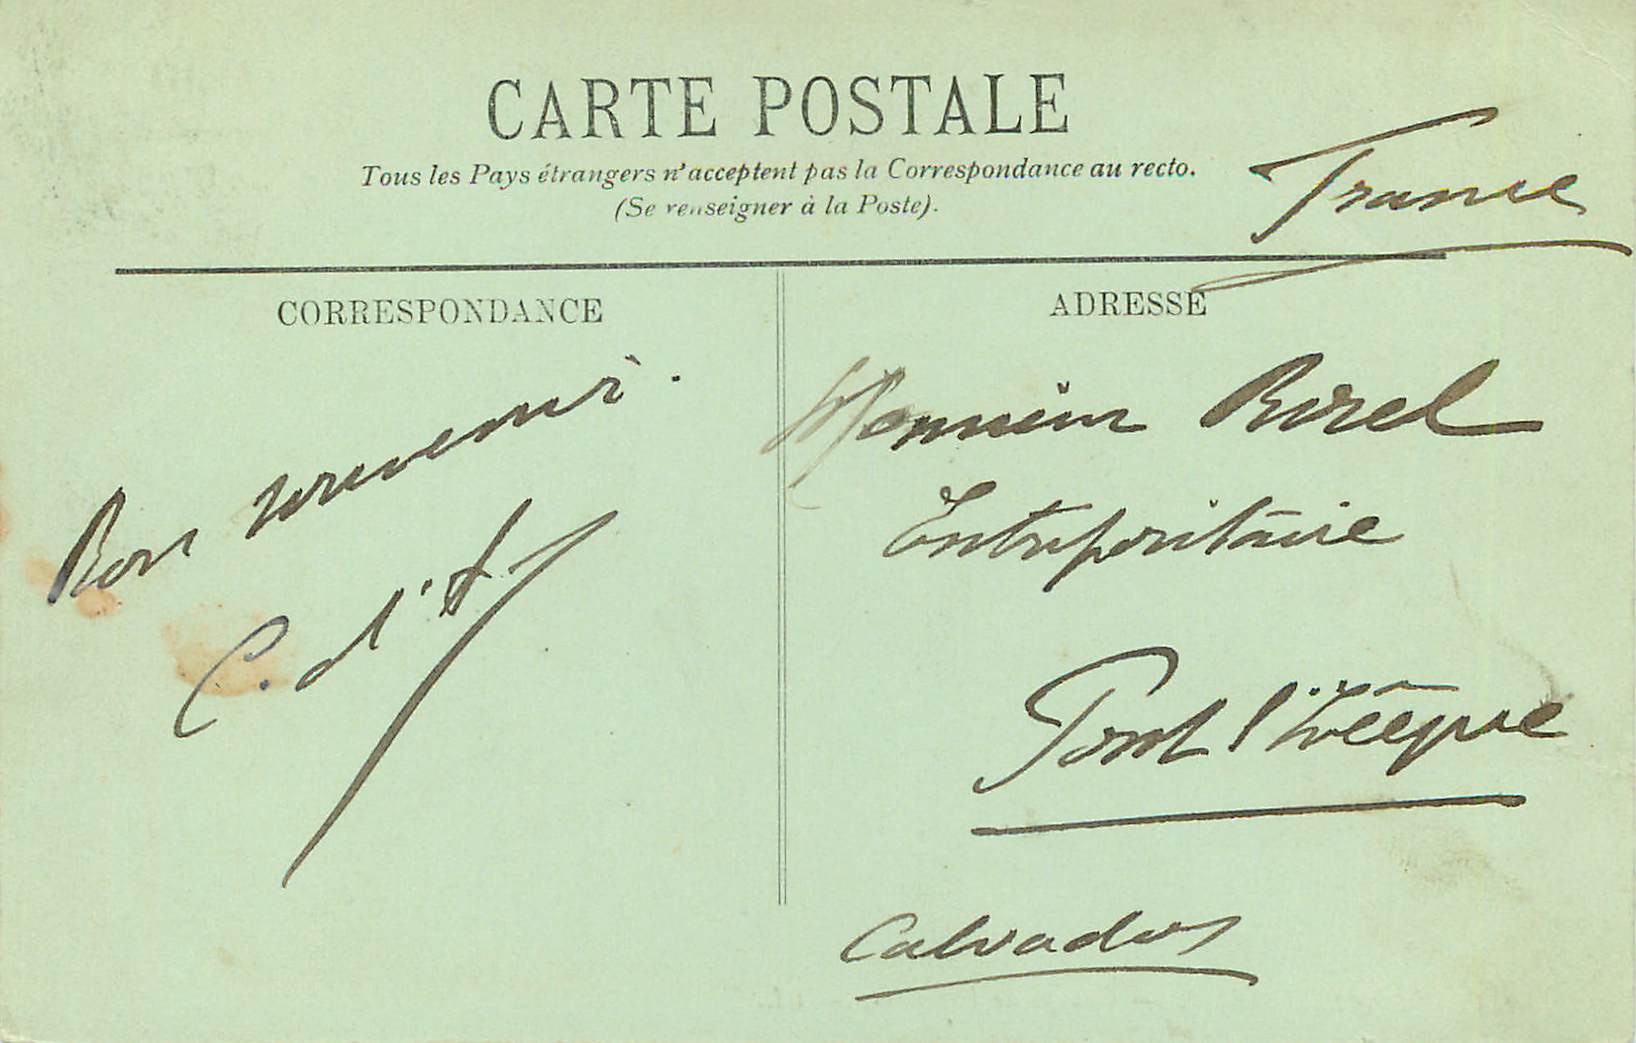 CARTE POSTALE
Tous les Pays étrangers n'acceptent pas la Correspondance au recto.
(Se renseigner à la Poste).
France
CORRESPONDANCE
Bon souvenir.
C. d'A
ADRESSE
Monsieur
Entrepositaire
Pont l'Évêque
Calvados